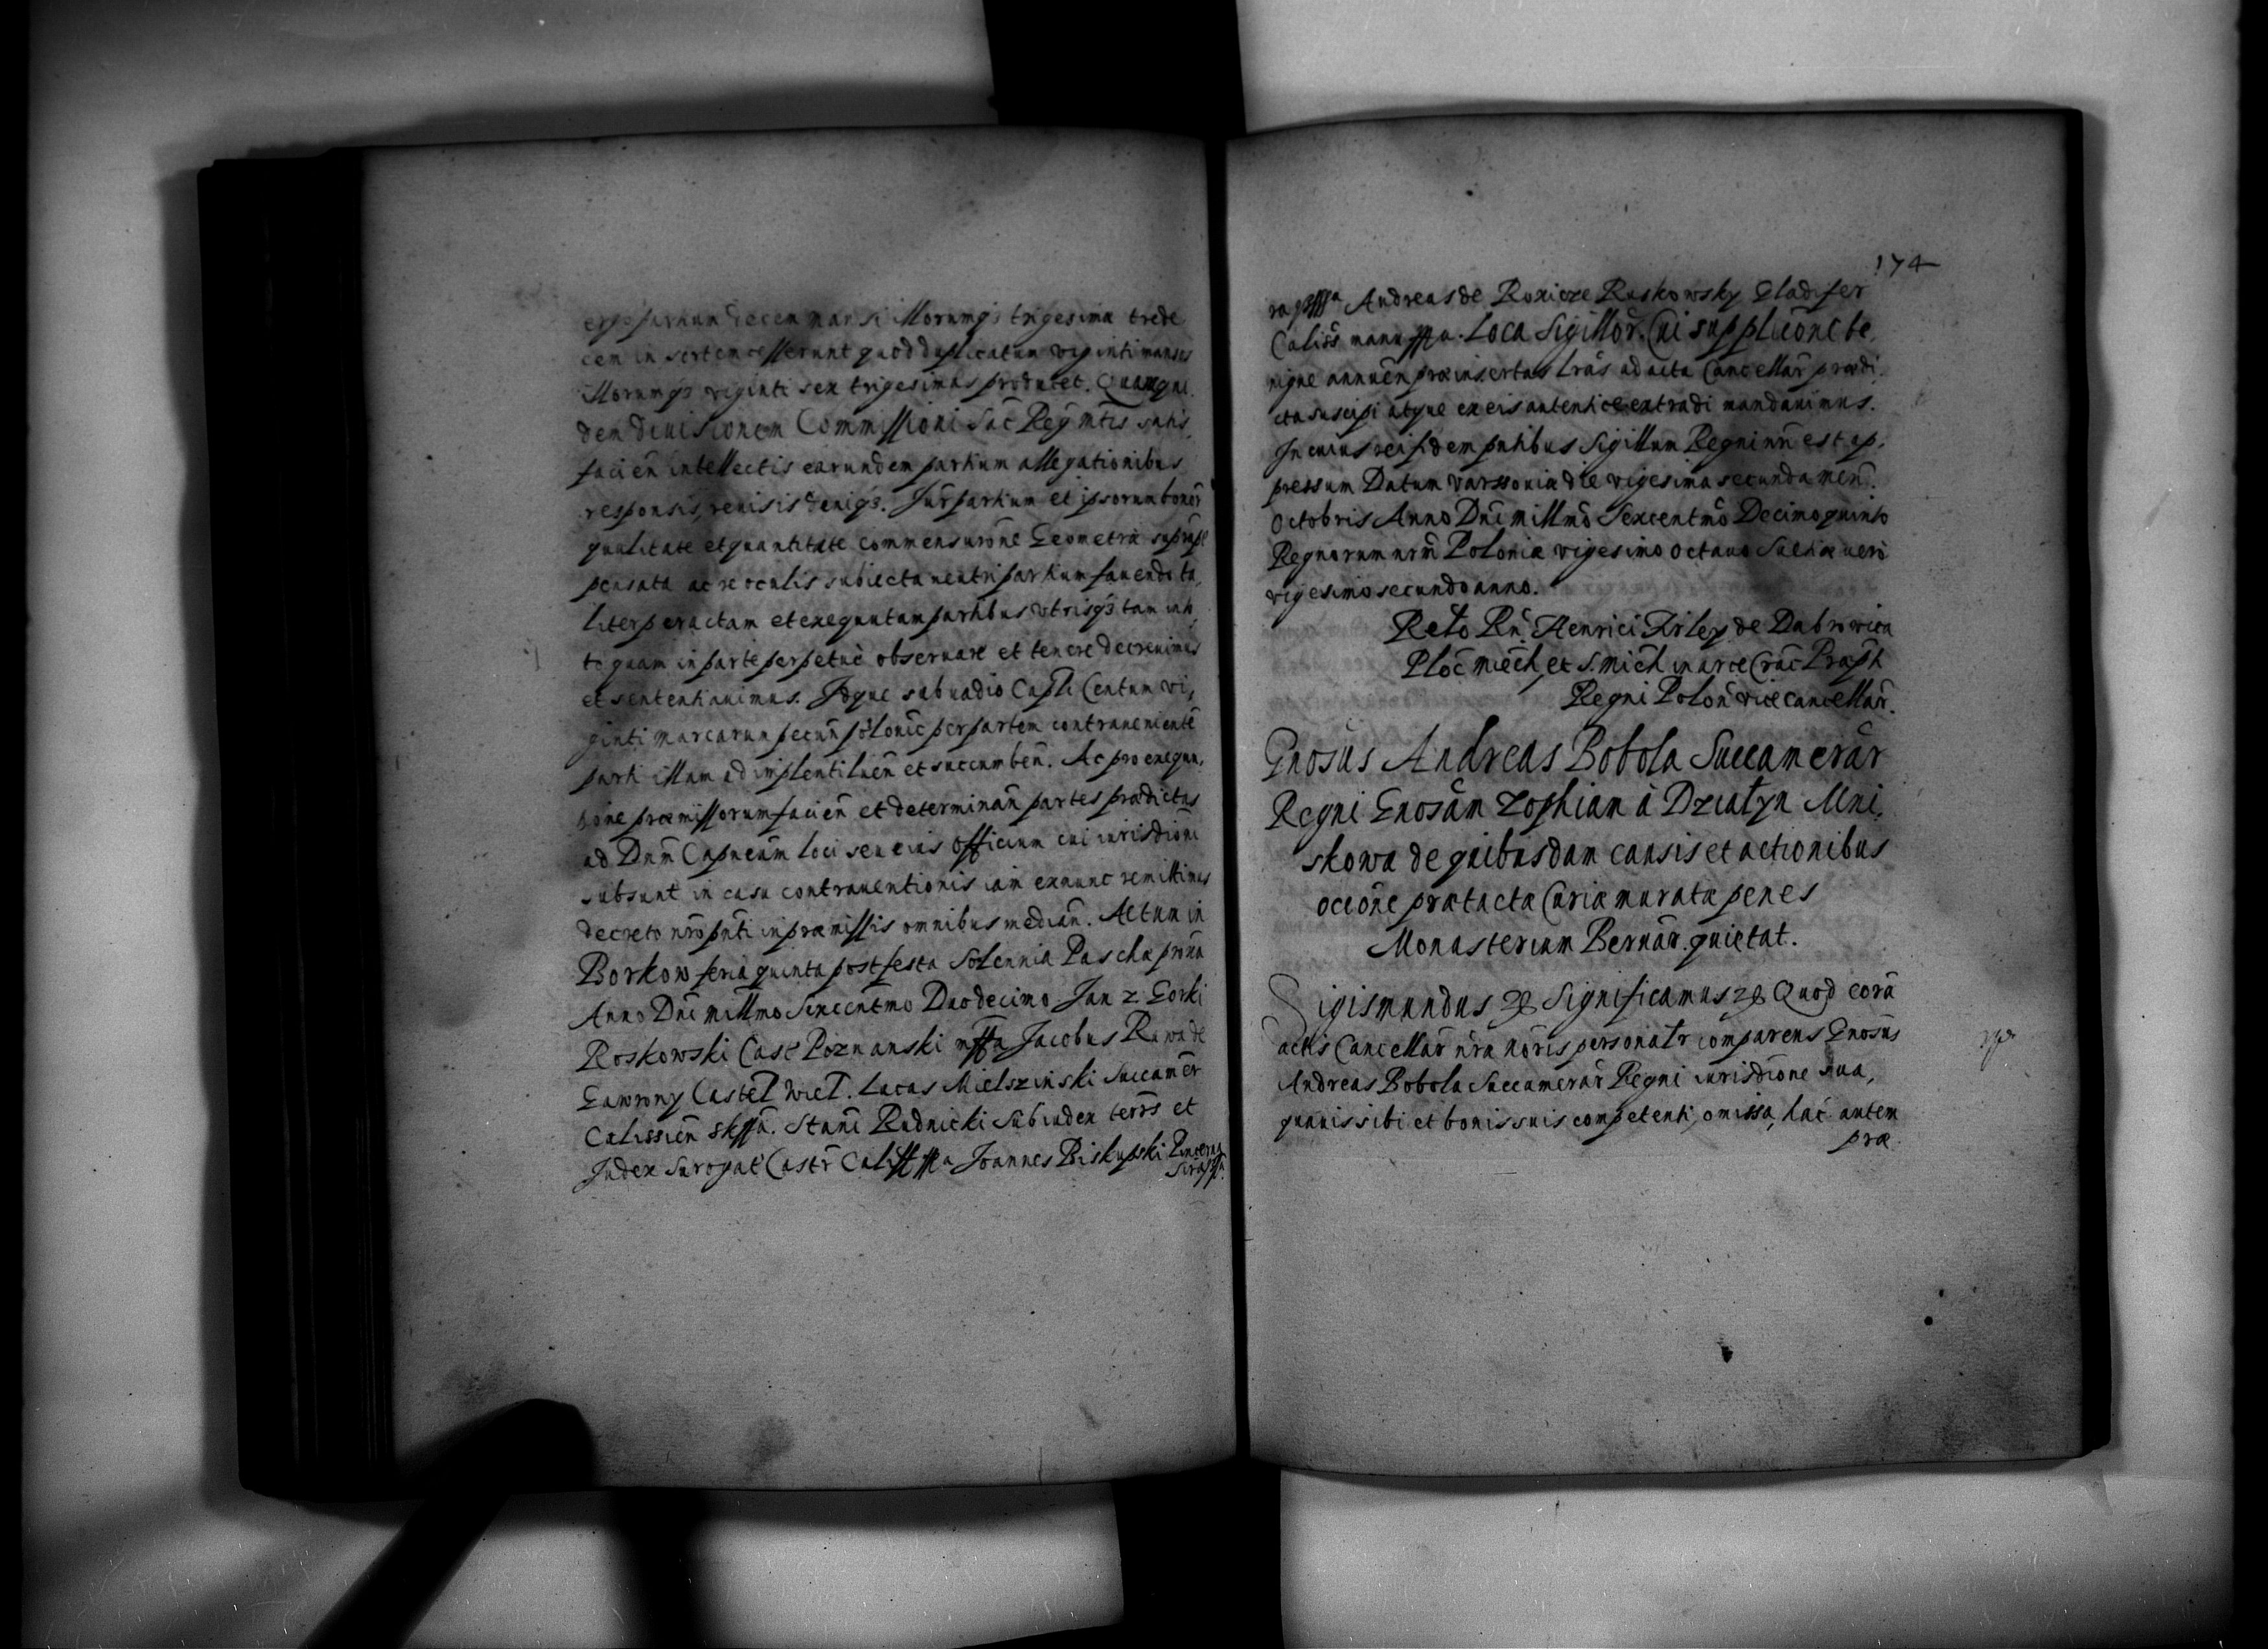 decem mansi illorumq3 trigesima trede
cem in sortem cesserunt quod duplicatum viginti mansos
illorumq3 viginti sex trigesimas producet. Quamqui,
dem divisionem Commissioni Sac̄ Reg̃ mtis satis,
facien̄ intellectis earundem partium allegationibus
responsis, revisis deniq3. Jur̄ partium et ipsorum bonor̄
qualitate et quantitate commensurōne Geometra
pensata ac re oculis subiecta neutri partium favendo ta,
liter peractam et exequutam partibus utrisq3 tam in to,
to quam in parte perpetuè observare et tenere decrevimus
et sententiavimus. Idque sub vadio Centum vi,
ginti marcarum pecun̄ polonic̄ per partem contravenientē
parti illam adimplenti luen̄ et succumben̄. Ac pro exequu,
tione præmissorum facien̄ et determinan̄ partes prædictas
ad Dnm̄ Capneūm loci seu eius officium cui iurisdīoni
subsunt in casu contraventionis iam exnunc remittimus
decreto nr̄o pn̄ti in præmissis omnibus median̄. Actum in
Borkow feria quinta post festa Solennia Paschæ
Anno Dnī millmo Sexcentmo Duodecimo Jan z Gorki
Roskowski Cast Poznanski mppa Jacobus Rawa de
Gawrony Castel Wiel. Lucas Mielszinski Succamer
Calissien̄ Stan̄ Rudnicki Subiudex terrs et
Judex Surogat Castr̄ Caliss mppa Joannes Biskupski
174
Andreas de Ruskowsky Gladifer
Caliss̄ manu ppa. Loca Sigillor̄. Cui supplicōne be,
nigne annuen̄ præinsertas lrās ad acta Cancellar̄ prædi,
cta suscipi atque ex eis autentice extradi mandavimus.
In cuius rei fidem pn̄tibus Sigillum Regni nr̄i est ap,
pressum Datum Varssoviæ die vigesima secunda men̄.
Octobris Anno Dnī millmō Sexcentmō Decimoquinto
Regnorum nr̄m Poloniæ vigesimo octavo Sueciæ verò
vigesimo secundo anno.
Relō Rn̄. Henrici Firley de Dabrowica
Ploc̄ miech, et S. mich in arce Crac̄ Præpt
Regni Polon̄ vicecancellar̄.
Gnosūs Andreas Bobola Succamerār
Regni Gnosām Zophiam à Dzialyn Mni,
skowa de quibusdam causis et actionibus
occōne prætacta Curiæ murata penes
Monasterium Bernār. quietat.
Sigismundus &c Significamus &c Quod corā
actis Cancellar̄ nr̄a nōris personalr comparens Gnosūs
Andreas Bobola Succamerār Regni iurisdīone sua,
quavis sibi et bonis suis competenti, omissa, hac autem
præ